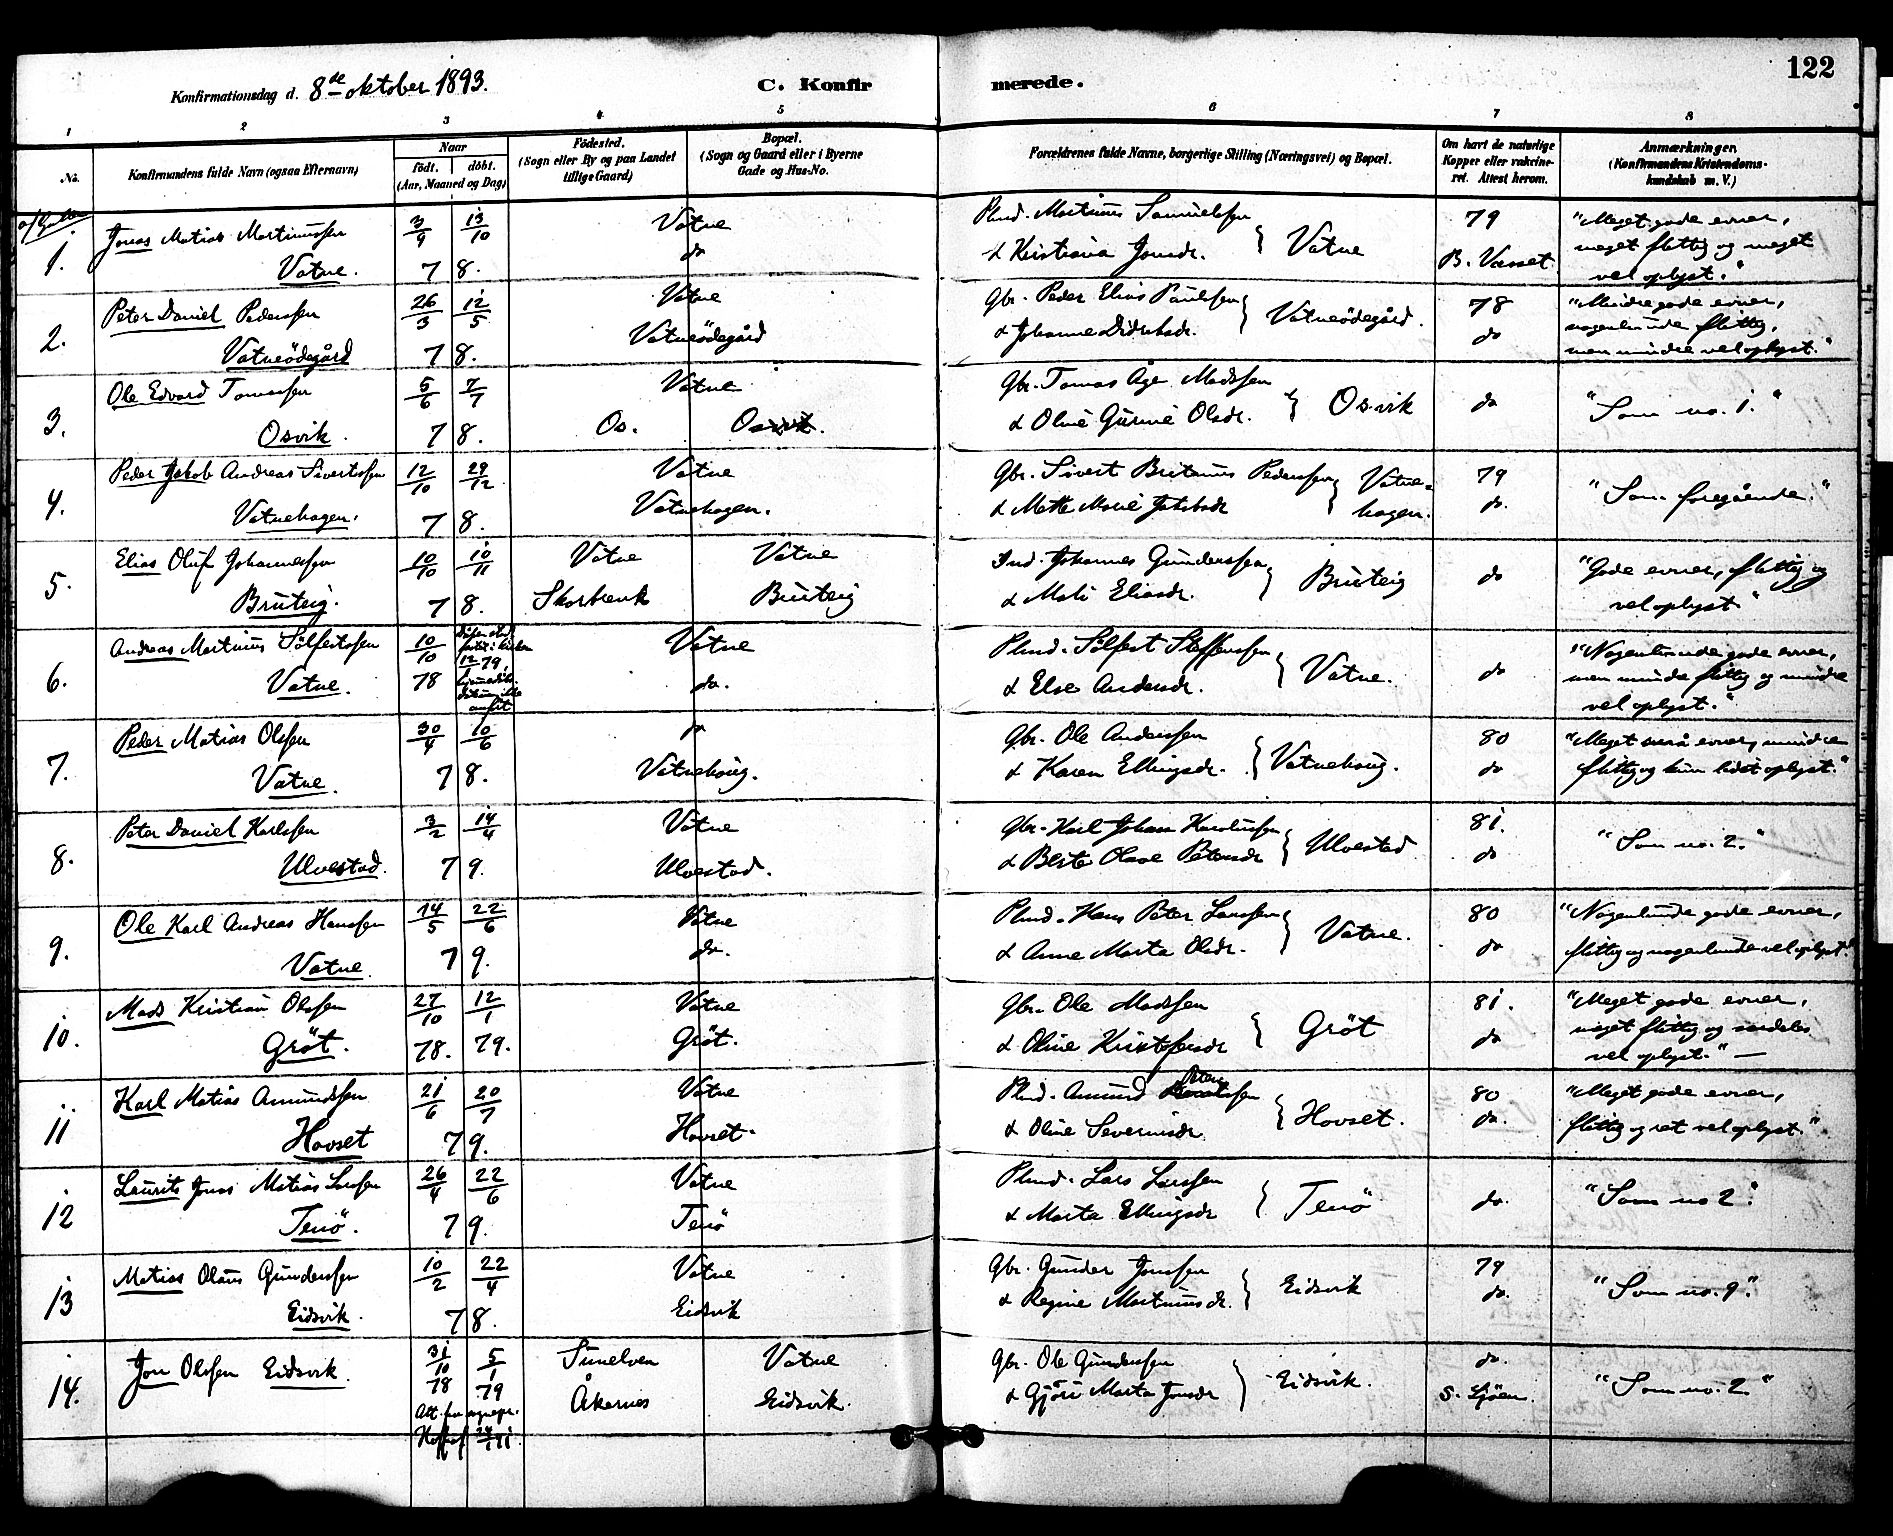 122
Konfirmationsdag d. 8de oktober 1893.
C. Konfirmerede.
1 2 3 4 5 6 7 8
No.
Konfirmandens fulde Navn (ogsaa Efternavn)
Naar
født. døbt.
(Aar, Maaned og Dag)
Fødested.
(Sogn eller By og paa Landet
tillige Gaard)
Bopæl.
(Sogn og Gaard eller i Byerne
Gade og Hus-No.
Forældrenes fulde Navne, borgerlige Stilling (Næringsvei) og Bopæl.
Om havt de naturlige
Kopper eller vakcine-
ret. Attest herom.
Anmærkninger.
(Konfirmandens Kristendoms-
kundskab m. V.)
1. Jonas Matias Martinussen 3/9 13/10 Vatne Plmd. Martinus Samuelsen 79 "Meget gode evner,
Vatne. 78. do & Kristiana Jonsdr. } Vatne B. Vasset meget flittig og meget
vel oplyst."
2. Peter Daniel Pederssen 26/3 12/5 Vatne Gbr. Peder Elias Paulssen 78 "Mindre gode evner,
Vatneödegård 78. Vatneödegård & Johanne Didriksdr. } Vatneödegård. do nogenlunde flittig,
men mindre vel oplyst."
3. Ole Edvard Tomassen 5/6 7/7 Vatne Gbr. Tomas Åge Madssen
Osvik. 78. Os. Osvik. & Oline Gurine Olsdr. } Osvik do "Som no. 1."
4. Peder Jakob Andreas Sivertssen 12/10 29/12 Vatne Gbr. Sivert Britanus Pederssen } Vatne- 79
Vatnehagen. 78. Vatnehagen. & Mette Marie Jakobsdr hagen. do. "Som foregående."
5. Elias Oluf Johannessen 10/10 10/11 Vatne Vatne Ind. Johannes Gunderssen "Gode evner, flittig og
Bruteig. 78. Skorbrenk Bruteig & Mali Eliasdr. } Bruteig do vel oplyst."
6. Andreas Martinus Sölfestssen 10/10 12/79, Vatne Plmd. Sölfest Steffenssen "Nogenlunde gode evner,
Vatne. 78 do. & Else Andersdr. } Vatne. do men mindre flittig og mindre
vel oplyst."
7. Peder Matias Olssen 30/4 10/6 do Gbr. Ole Anderssen 80 "Meget små evner, mindre
Vatne. 78. Vatnehaug. & Karen Ellingsdr. } Vatnehaug. do flittig og kun lidet oplyst."
8. Peter Daniel Karlssen 3/2 14/4 Vatne Gbr. Karl Johan Karolussen 81.
Ulvestad. 79. Ulvestad. & Berte Olave Petersdr } Ulvestad do "Som no. 2."
9. Ole Karl Andreas Hanssen 14/5 22/6 Vatne Plmd. Hans Peter Larssen 80 "Nogenlunde gode evner,
Vatne. 79. do. & Anne Marta Olsdr. } Vatne. do flittig og nogenlunde vel oplyst."
10. Mads Kristian Olssen 27/10 12/1 Vatne Gbr. Ole Madssen 81. "Meget gode evner,
Gröt. 78. 79. Gröt. & Oline Kristofersdr } Gröt do meget flittig og særdeles
vel oplyst." —
11 Karl Matias Amundssen 21/6 20/7 Vatne Plmd. Amund Peterssen 80 "Meget gode evner,
Hovset 79. Hovset. & Oline Severinsdr. } Hovset. do. flittig og ret vel oplyst."
12 Laurits Jonas Matias Larssen 26/4 22/6 Vatne Plmd. Lars Larssen
Tenö. 79. Tenö & Marta Ellingsdr } Tenö do. "Som no 2."
13 Matias Olaus Gunderssen 10/2 22/4 Vatne Gbr. Gunder Jonssen 79
Eidsvik. 78. Eidsvik & Regine Martinusdr. } Eidsvik do. "Som no. 9."
14. Jon Olssen Eidsvik. 31/10 78 5/1 79 Sunelven Vatne Gbr. Ole Gunderssen do.
Åkernes Eidsvik. & Gjöri Marta Jonsdr } Eidsvik. S. Sjöen "Som no. 2"